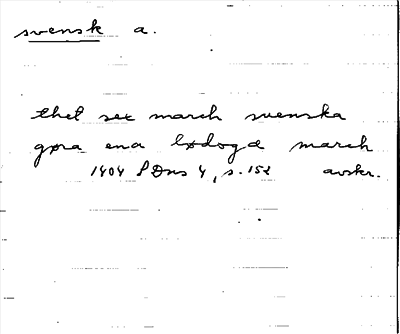 svensk a.
thet sex march svenska
gøra ena lødogæ march
1404 SDns 4, s. 152 avskr.